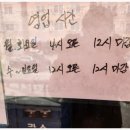 영업시간
월 화요일 4시오픈 12시마감
수~일요일 12시오픈 12시마감